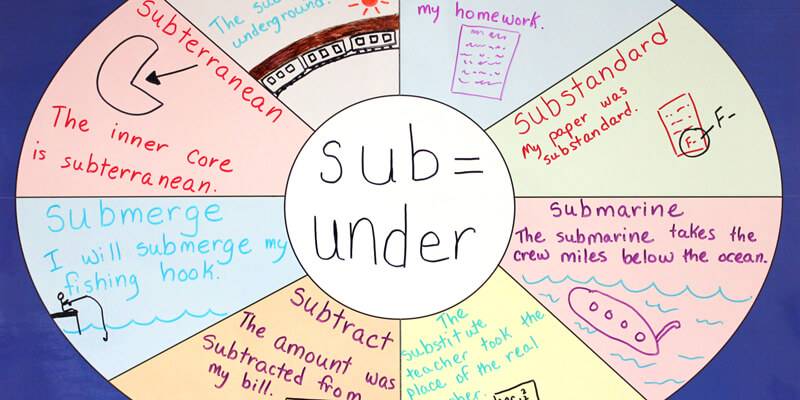 sub=
under
The sub
underground.
my homework.
Substandard
My paper was
substandard.
F-
F-
submarine
The submarine takes the
crew miles below the ocean.
The
substitute
teacher took the
place of the real
Subtract
The amount was
Subtracted from
my bill.
Submerge
I will submerge my
fishing hook.
Subterranean
The inner core
is subterranean.